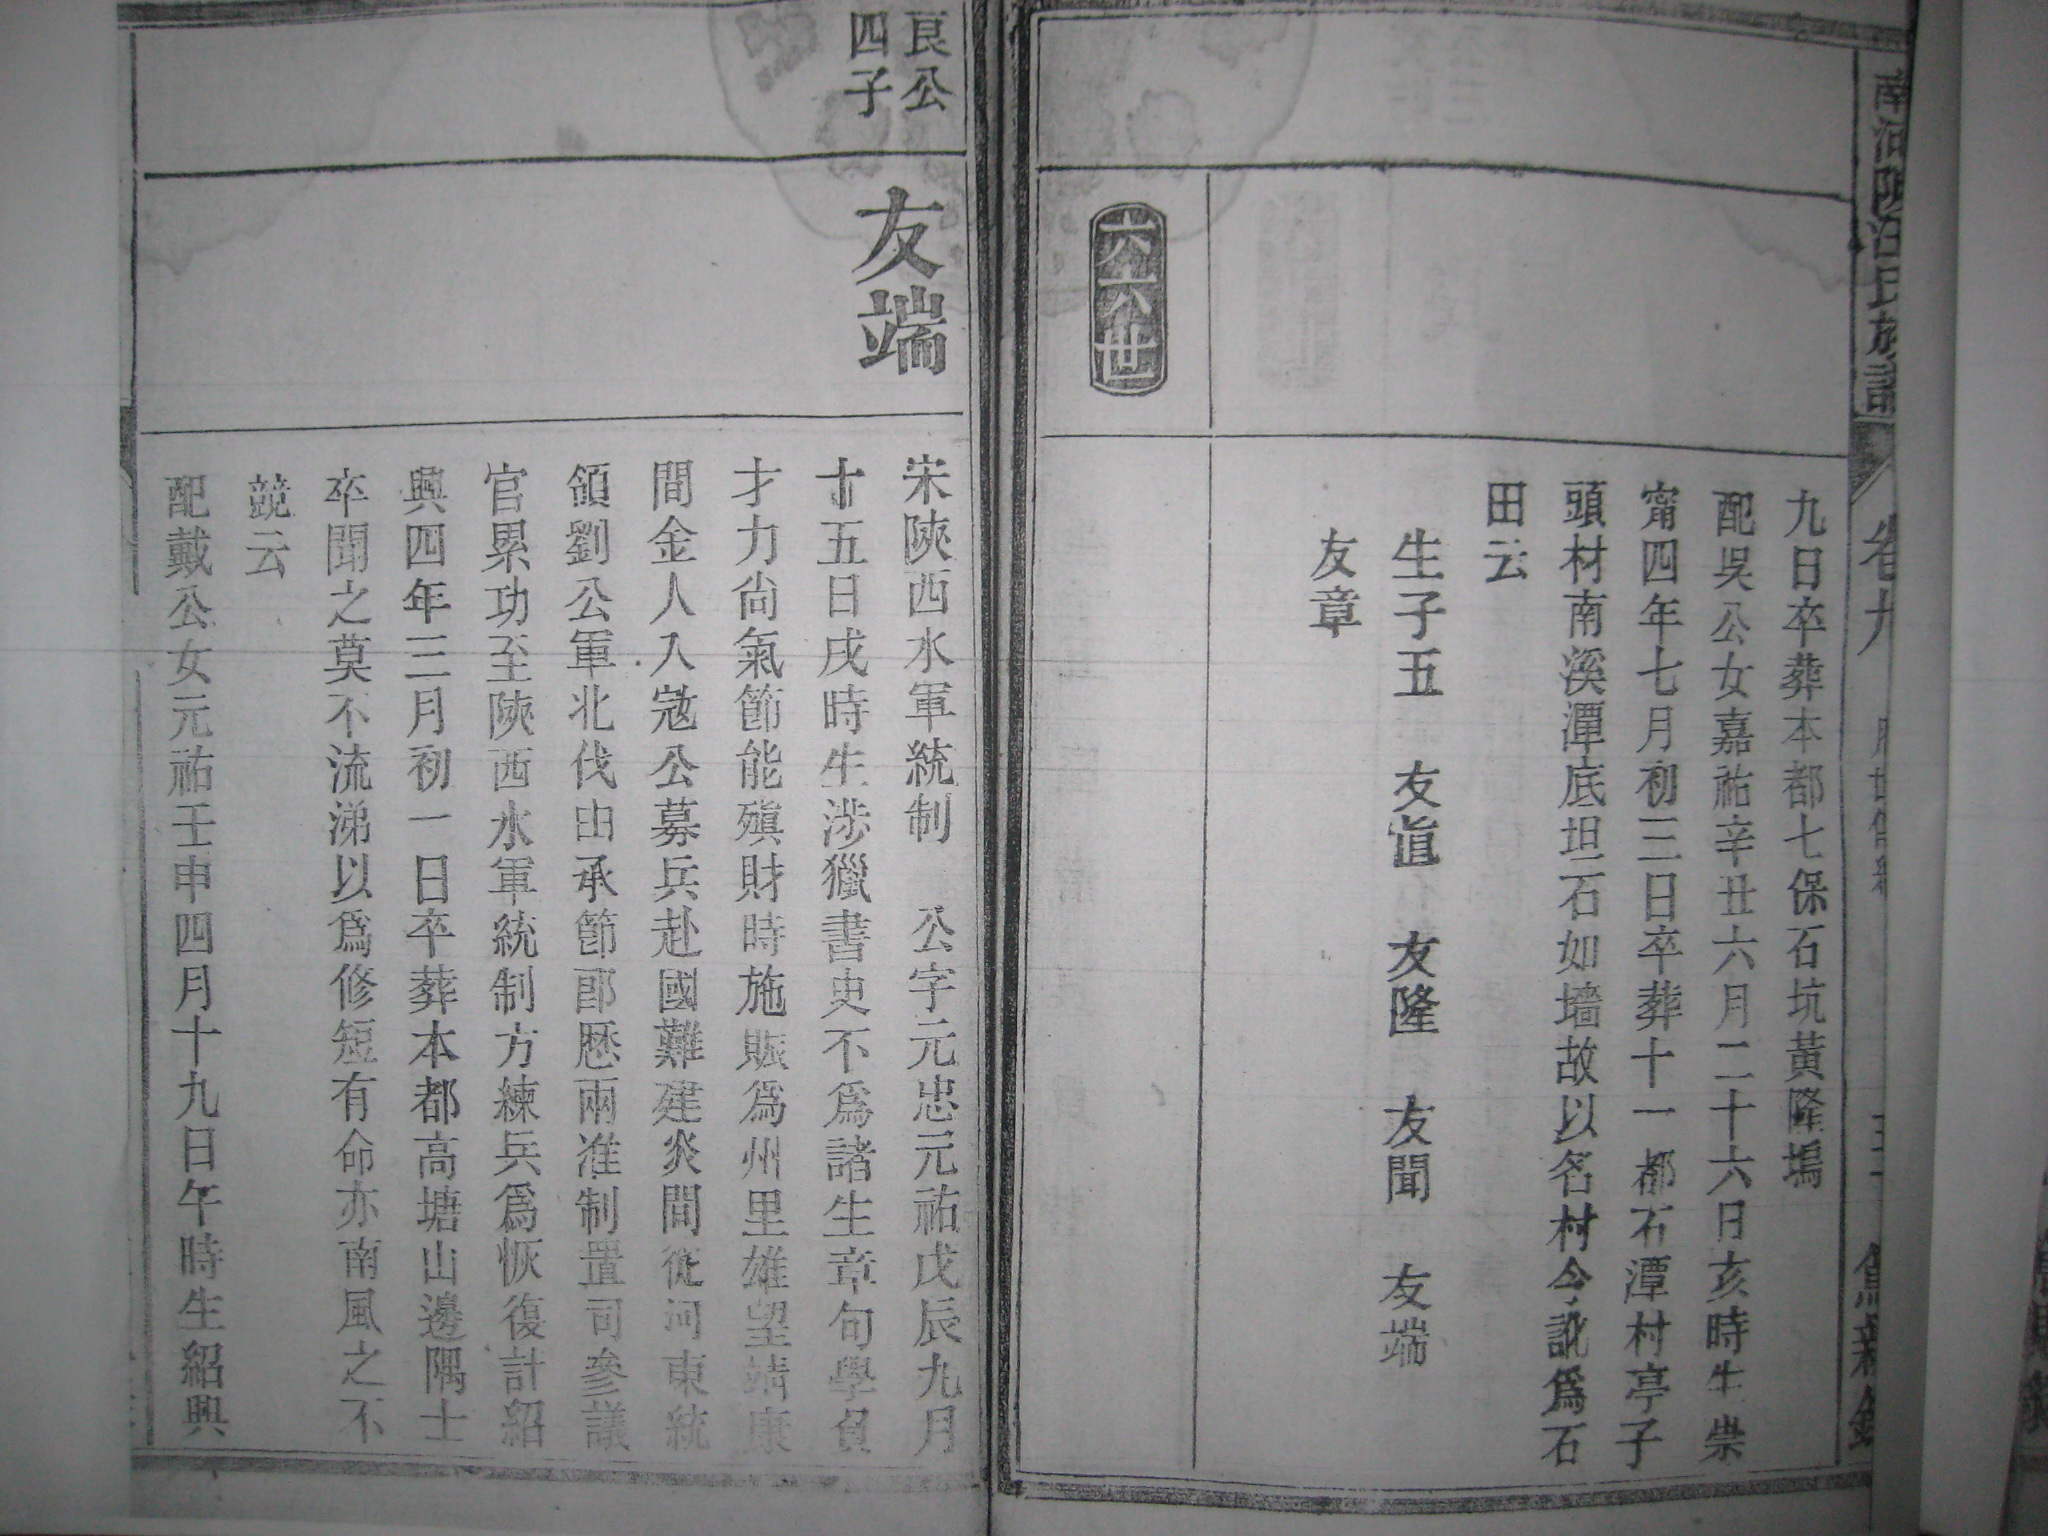 九日卒葬本都七保石坑黃隆塢
配吳公女嘉祐辛丑六月二十六日亥時生崇
甯四年七月初三日卒葬十一都石潭村亭子
頭材南溪潭底坦石如墻故以名村今訛爲石
田云
生子五 友直 友隆 友聞 友端
友章
六十八世
良公
四子
友端
宋陝西水軍統制 公字元忠元祐戊辰九月
十五日戌時生涉獵書史不爲諸生章句學負
才力尙氣節能殫財時施賑爲州里雄望靖康
間金人入冦公募兵赴國難建炎間從河東統
領劉公軍北伐由承節郎歷兩淮制置司參議
官累功至陝西水軍統制方練兵爲恢復計紹
興四年三月初一日卒葬本都高塘山邊隅士
卒聞之莫不流涕以爲修短有命亦南風之不
競云
配戴公女元祐壬申四月十九日午時生紹興